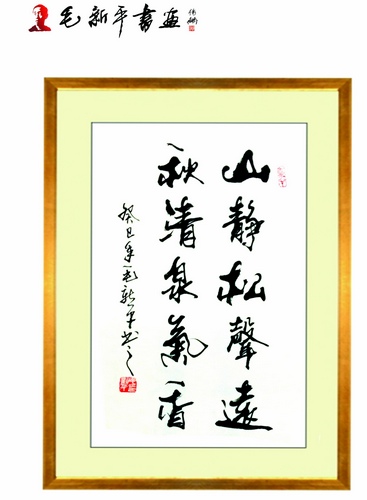 毛新平書画
山靜松聲遠
秋清泉氣香
癸巳年毛新平书之